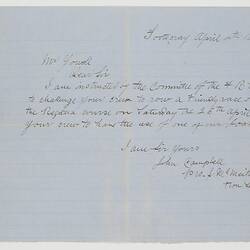 Footscray April 10th
Mr Yould
Dear Sir
I am instructed of the Committee of the
to challenge your crew to row a Friendly race
the Regatta course on Saturday the 26th April
your crew to have the use of one of our
I am Sir Yours
John Campbell
Hon